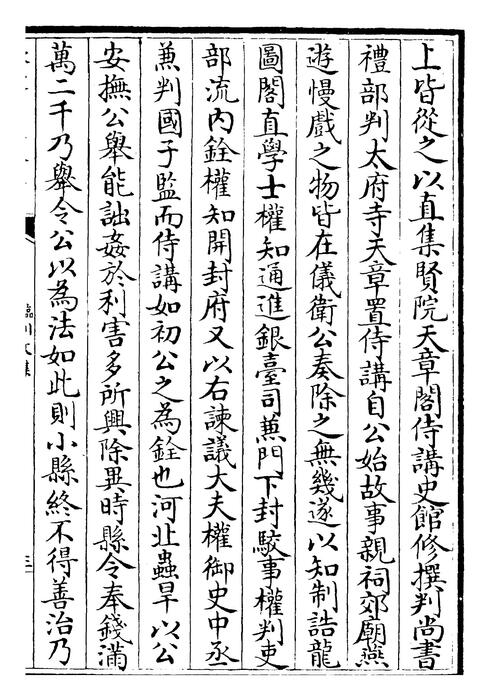 上皆從之以直集賢院天章閣侍講史館修撰判尚書
禮部判太府寺天章置侍講自公始故事親祠郊廟燕
遊慢戲之物皆在儀衛公奏除之無幾遂以知制誥龍
圖閣直學士權知通進銀臺司兼門下封駮事權判吏
部流内銓權知開封府又以右諫議大夫權御史中丞
兼判國子監而侍講如初公之為銓也河北蟲旱以公
安撫公舉能詘姦於利害多所興除異時縣令奉錢滿
萬二千乃舉令公以為法如此則小縣終不得善治乃
臨川文集